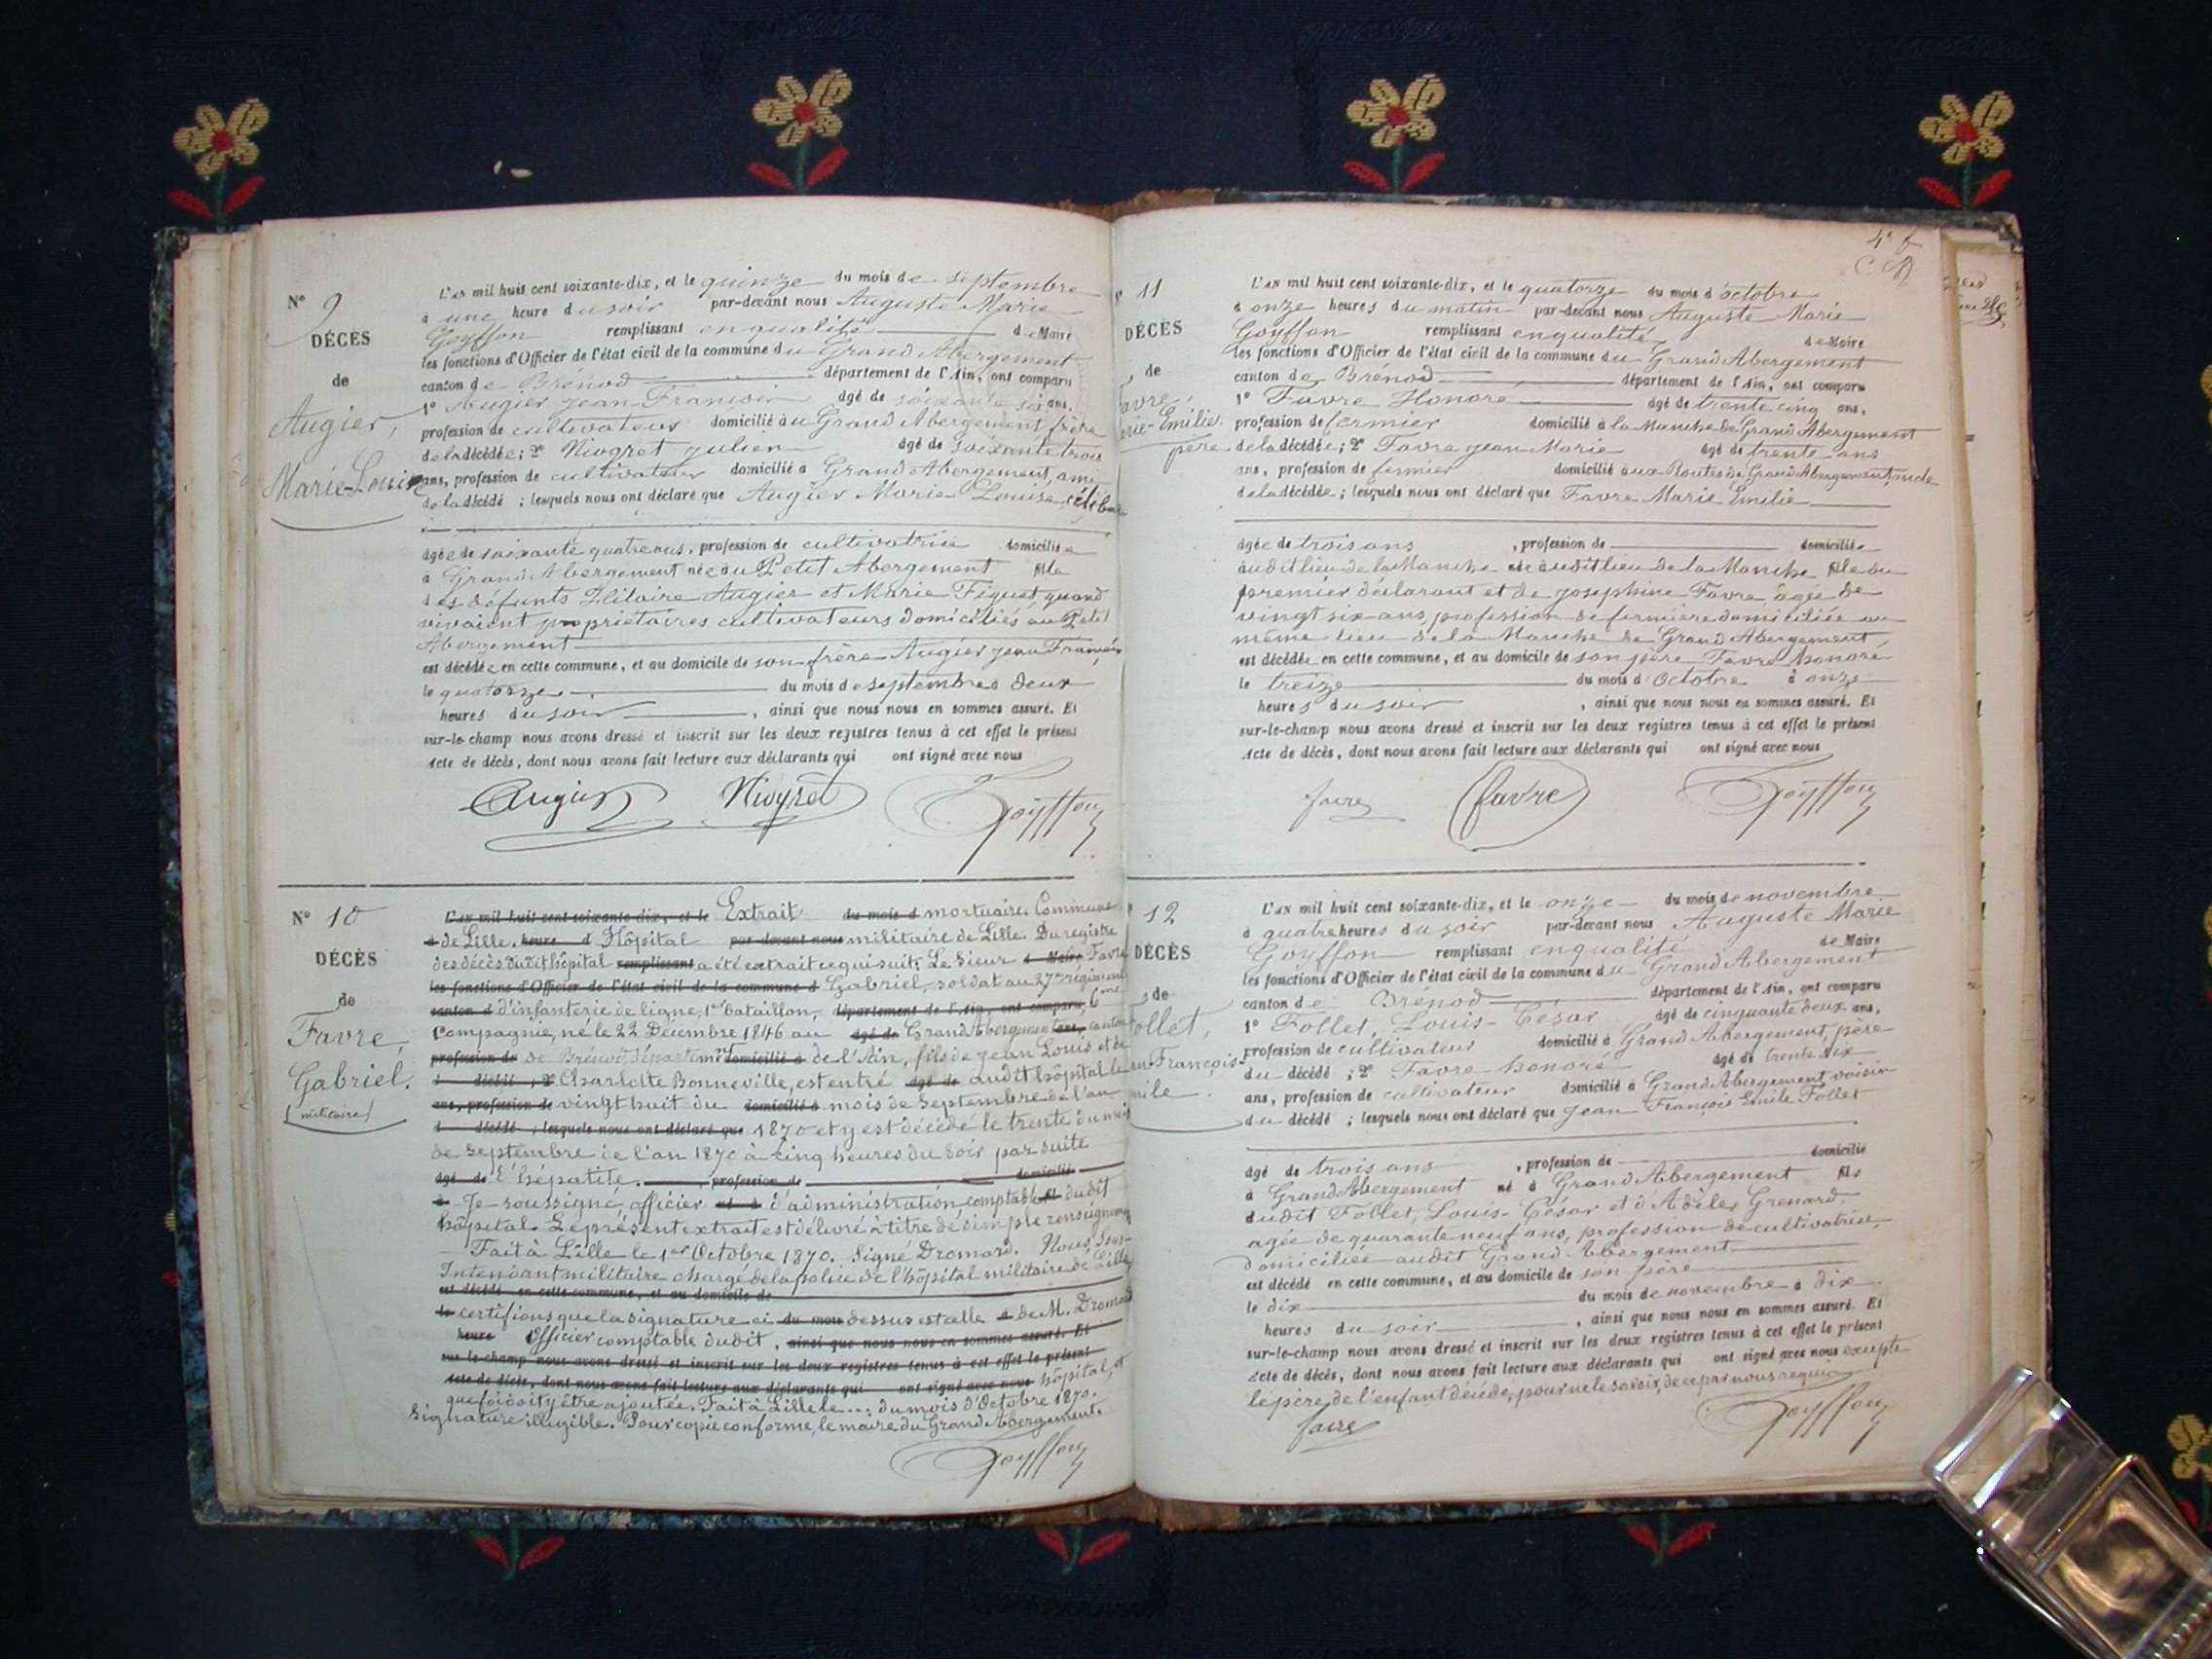 N° 9
DÉCÈS
de
Augier,
Marie-Louise
L'an mil huit cent soixante-dix, et le quinze du mois de septembre
à une heure du soir par-devant nous Auguste Marie
Goyffon remplissant en qualité de Maire
les fonctions d'Officier de l'état civil de la commune du Grand Abergement
canton de Brénod département de l'Ain, ont comparu
1° Augier Jean François âgé de soixante six ans,
profession de cultivateur domicilié au Grand Abergement, frère
de la décédée; 2° Niogret Julien âgé de soixante trois
ans, profession de cultivateur domicilié à Grand Abergement, ami
de la décédé ; lesquels nous ont déclaré que Augier Marie Louise,
âgée de soixante quatre ans, profession de cultivatrice domiciliée
à Grand Abergement née au Petit Abergement fille
des défunts Hilaire Augier et Marie Figuet, quand
vivaient propriétaires cultivateurs domiciliés au Petit
Abergement
est décédée en cette commune, et au domicile de son frère Augier Jean François
le quatorze du mois de septembre à deux
heures du soir, ainsi que nous nous en sommes assuré. Et
sur-le-champ nous avons dressé et inscrit sur les deux registres tenus à cet effet le présent
acte de décès, dont nous avons fait lecture aux déclarants qui ont signé avec nous
Augier Niogret Goyffon
N° 10
DÉCÈS
de
Favre,
Gabriel.
(militaire)
L'an mil huit cent soixante-dix, et le Extrait du mois d mortuaire. Commune
à de Lille. heure d Hôpital par-devant nous militaire de Lille. Du registre
des décès dudit hôpital remplissant a été extrait ce qui suit: Le sieur d Maire Favre
les fonctions d'Officier de l'état civil de la commune d Gabriel, soldat au 27me régiment
canton d d'infanterie de ligne, 1er bataillon, département de l'Ain, ont comparu, 6me
compagnie, né le 22 Décembre 1846 au âgé de Grand Abergement ans, canton
profession de de Brénod départemnt domicilié à de l'Ain, fils de Jean Louis et de
d décédé ; 2° Charlotte Bonneville, est entré âgé de audit hôpital le
ans, profession de vingt huit du domicilié à mois de Septembre de l'an
d décédé ; lesquels nous ont déclaré que 1870 et y est décédé le trente du mois
de Septembre de l'an 1870 à cinq heures du soir par suite
âgé de d'hépatite. , profession de domicilié
à Je soussigné, officier né à d'administration comptable fil dudit
hôpital. Le présent extrait est délivré à titre de simple renseignement
Fait à Lille le 1er Octobre 1870. Signé Dromard. Nous, Sous-
Intendant militaire chargé de la police de l'hôpital militaire de Lille
est décédé en cette commune, et au domicile de
le certifions que la signature ci du mois dessus est celle à de M. Dromard
heure Officier comptable dudit , ainsi que nous nous en sommes assuré. Et
sur-le-champ nous avons dressé et inscrit sur les deux registres tenus à cet effet le présent
acte de décès, dont nous avons fait lecture aux déclarants qui ont signé avec nous hôpital, et
que foi doit y être ajoutée. Fait à Lille le ... du mois d'Octobre 1870.
Signature illegible. Pour copie conforme, le maire du Grand Abergement.
Goyffon
11
DÉCÈS
de
avre,
rie-Emilie.
père
L'an mil huit cent soixante-dix, et le quatorze du mois d'octobre
à onze heures du matin par-devant nous Auguste Marie
Goyffon remplissant en qualité de Maire
les fonctions d'Officier de l'état civil de la commune du Grand Abergement
canton de Brénod département de l'Ain, ont comparu
1° Favre Honoré âgé de trente cinq ans,
profession de fermier domicilié à la Manche de Grand Abergement
de la décédée; 2° Favre Jean Marie âgé de trente ans
ans, profession de fermier domicilié aux Routes de Grand Abergement, oncle
de la décédée ; lesquels nous ont déclaré que Favre Marie Emilie
âgée de trois ans , profession de domiciliée
audit lieu de la Manche née audit lieu de la Manche fille du
premier déclarant et de Joséphine Favre, âgée de
vingt six ans, profession de fermière domiciliée au
même lieu de la Manche de Grand Abergement,
est décédée en cette commune, et au domicile de son père Favre Honoré
le treize du mois d'Octobre à onze
heures du soir , ainsi que nous nous en sommes assuré. Et
sur-le-champ nous avons dressé et inscrit sur les deux registres tenus à cet effet le présent
acte de décès, dont nous avons fait lecture aux déclarants qui ont signé avec nous
favre favre Goyffon
12
DÉCÈS
de
ollet,
an François-
mile.
L'an mil huit cent soixante-dix, et le onze du mois de novembre
à quatre heures du soir par-devant nous Auguste Marie
Goyffon remplissant en qualité de Maire
les fonctions d'Officier de l'état civil de la commune du Grand Abergement
canton de Brénod département de l'Ain, ont comparu
1° Follet, Louis-César âgé de cinquante deux ans,
profession de cultivateur domicilié à Grand Abergement, père
du décédé ; 2° Favre honoré âgé de trente six
ans, profession de cultivateur domicilié à Grand Abergement voisin
du décédé ; lesquels nous ont déclaré que Jean François Emile Follet
âgé de trois ans , profession de domicilié
à Grand Abergement né à Grand Abergement fils
dudit Follet, Louis-César et d'Adèle Grenard,
agée de quarante neuf ans, profession de cultivatrice
domiciliée audit Grand Abergement
est décédé en cette commune, et au domicile de son père
le dix du mois de novembre à dix
heures du soir , ainsi que nous nous en sommes assuré. Et
sur-le-champ nous avons dressé et inscrit sur les deux registres tenus à cet effet le présent
acte de décès, dont nous avons fait lecture aux déclarants qui ont signé avec nous excepté
le père de l'enfant décédé, pour ne le savoir, de ce par nous requis
favre Goyffon